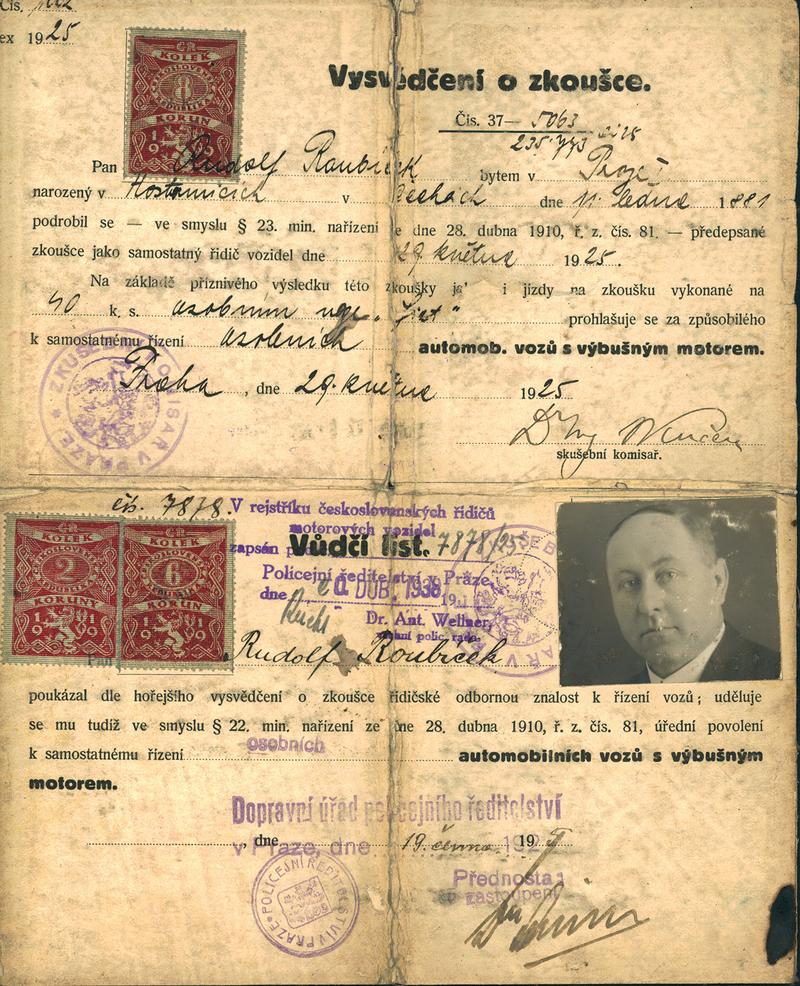 Čís.
ex 1925
ČR
KOLEK
8
KORUN
1919
Vysvědčení o zkoušce.
Čís. 37— 5063
235.773
Pan Rudolf Roubíček bytem v
narozený v v Čechách dne 11. ledna 1881
podrobil se — ve smyslu § 23. min. nařízení ze dne 28. dubna 1910, ř. z. čís. 81. — předepsané
zkoušce jako samostatný řidič vozidel dne 29. května 1925.
Na základě příznivého výsledku této zkoušky jak i jízdy na zkoušku vykonané na
40 k. s. osobním prohlašuje se za způsobilého
k samostatnému řízení osobních automob. vozů s výbušným motorem.
Praha, dne 29. května 1925
ZKUŠEBNÍ KOMISAŘ V PRAZE
Dr Ing
skušební komisař.
čís. 7878.
V rejstříku československých řidičů
motorových vozidel
zapsán
Vůdčí list. 7878/25
Policejní ředitelství v Praze,
dne DUB. 1938 19
Dr. Ant. Wellner,
polic. rada.
ČR
KOLEK
2
KORUNY
1919
ČR
KOLEK
6
KORUN
1919
Pan Rudolf Roubíček
poukázal dle hořejšího vysvědčení o zkoušce řidičské odbornou znalost k řízení vozů; uděluje
se mu tudíž ve smyslu § 22. min. nařízení ze dne 28. dubna 1910, ř. z. čís. 81, úřední povolení
k samostatnému řízení osobních automobilních vozů s výbušným
motorem.
Dopravní úřad policejního ředitelství
v Praze, dne 19. června 192
, dne 19
POLICEJNÍ ŘEDITELSTVÍ V PRAZE
Přednosta:
v zastoupení